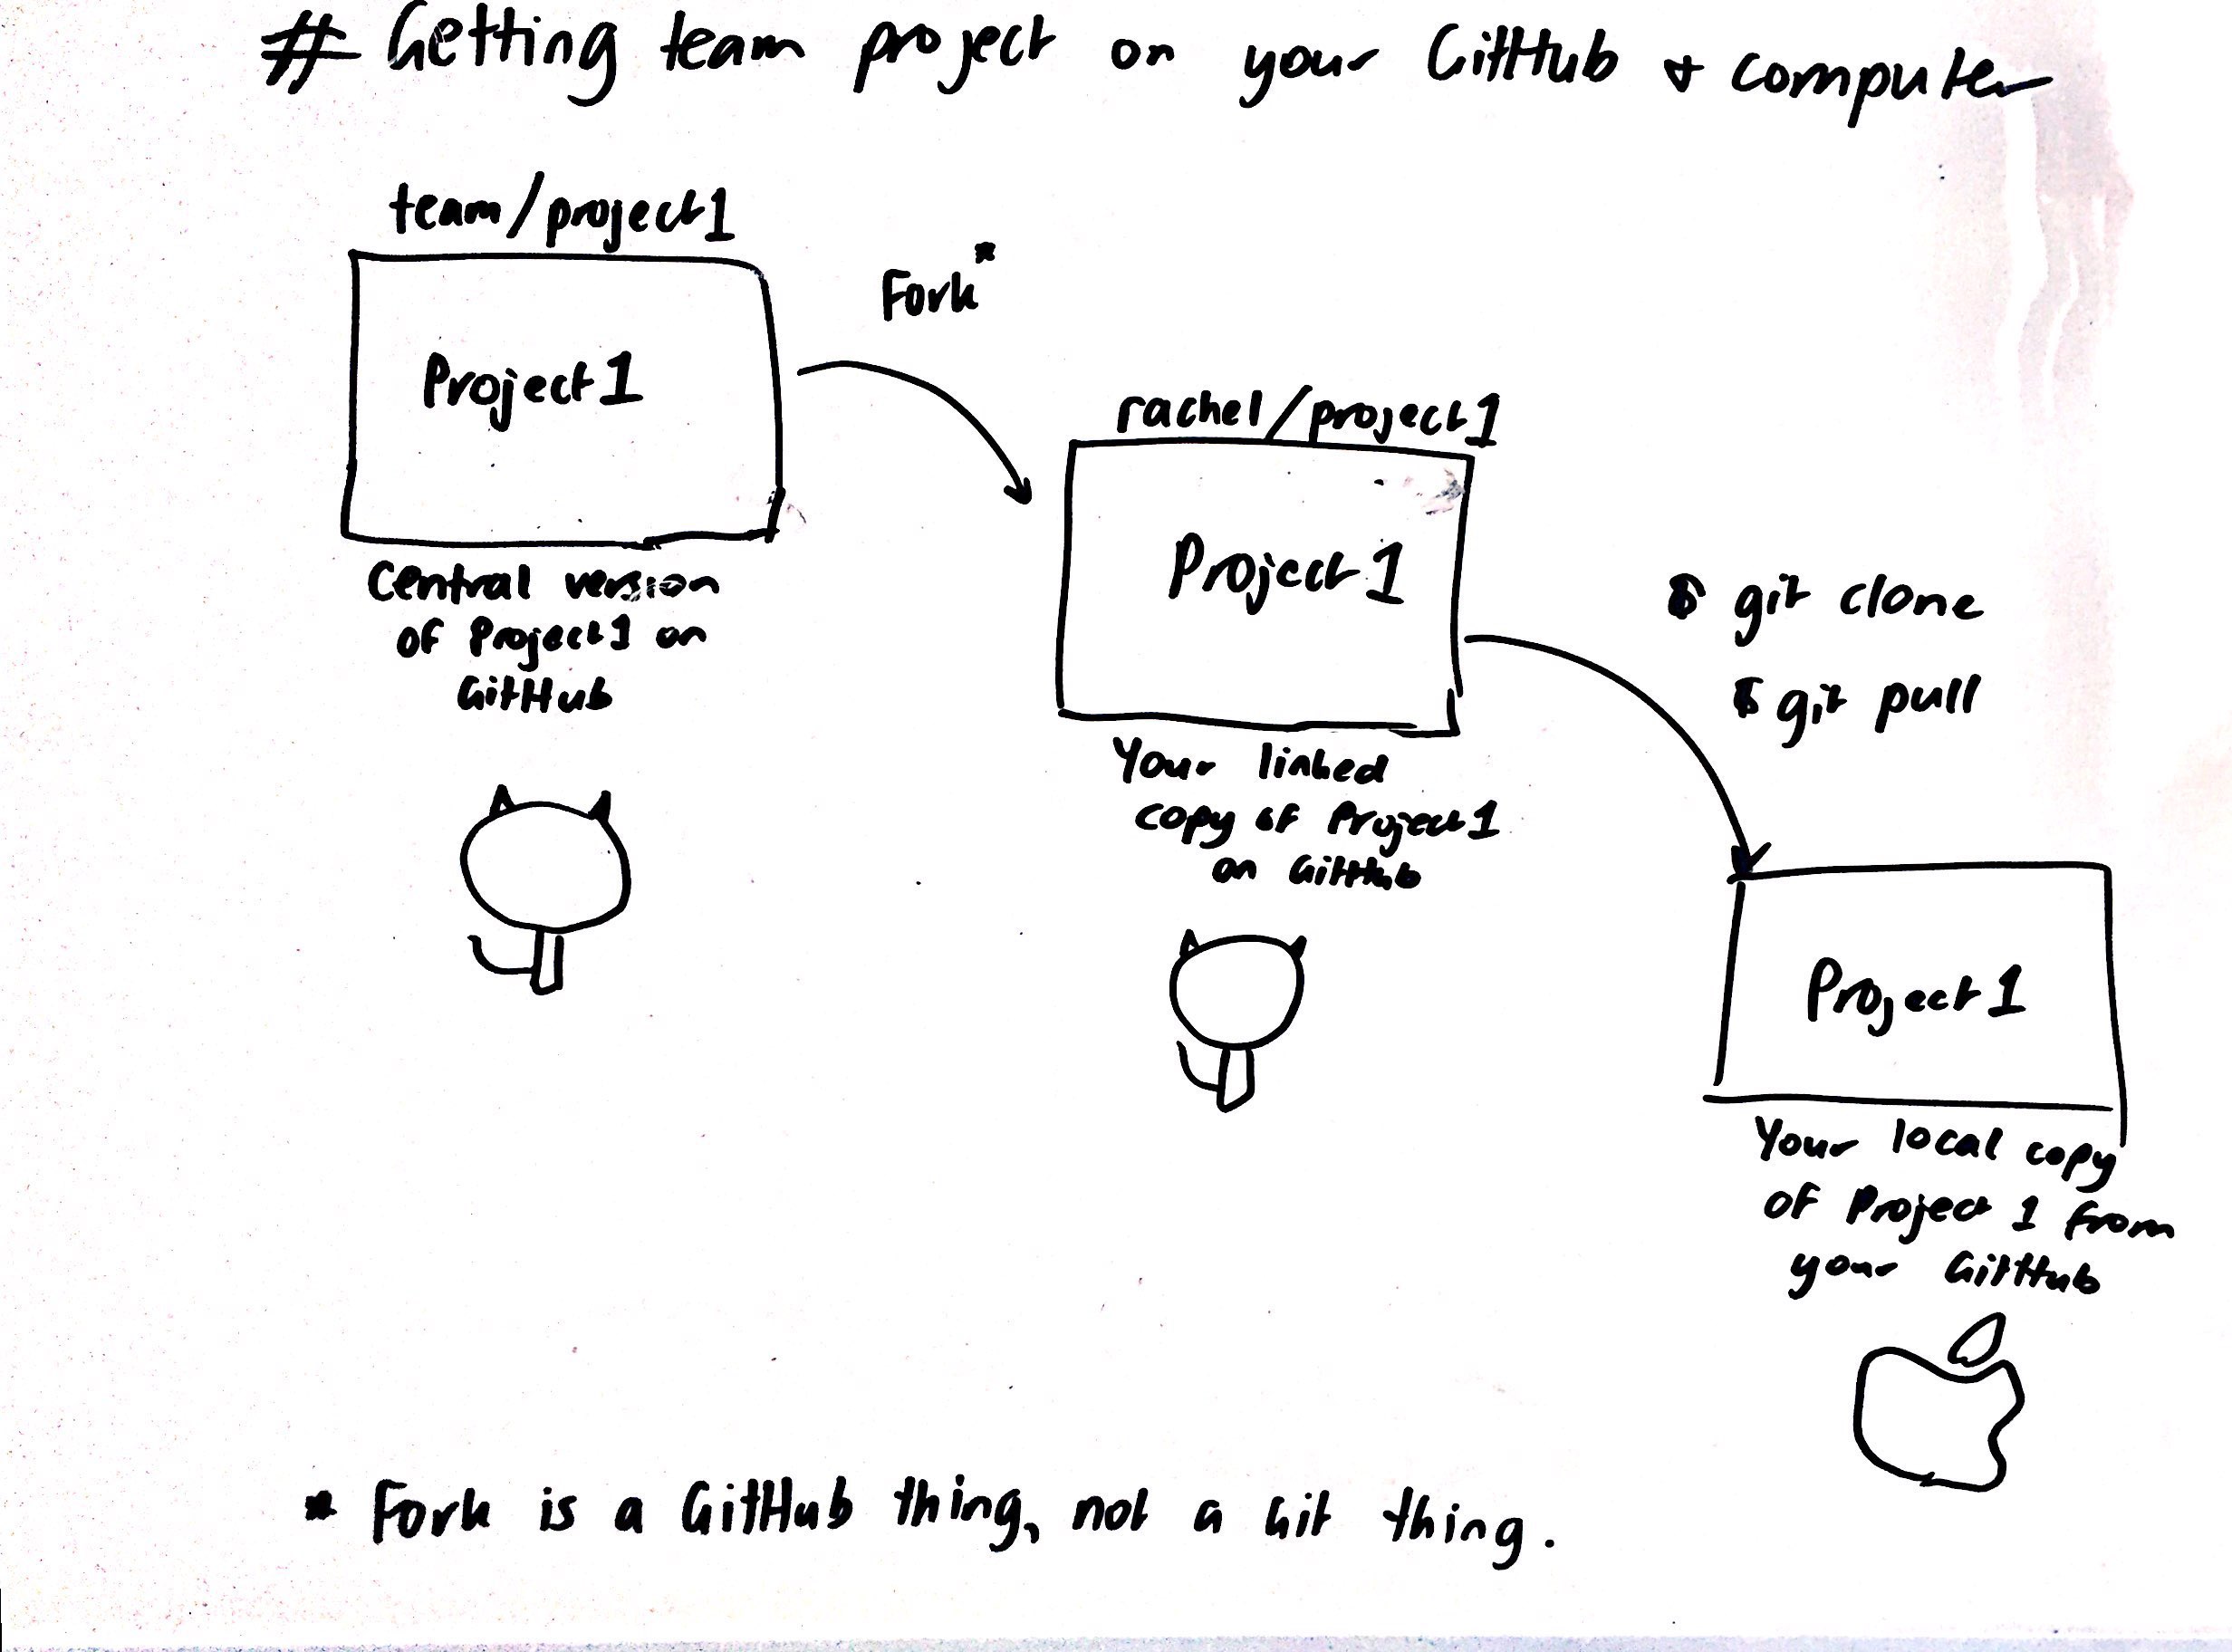 # Getting team project on your GitHub & computer
team/project1
Project1
Central version
of Project1 on
GitHub
Fork*
rachel/project1
Project1
Your linked
copy of Project1
on GitHub
$ git clone
$ git pull
Project1
Your local copy
of Project 1 from
your GitHub
* Fork is a GitHub thing, not a Git thing.